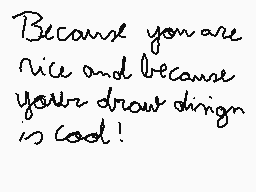 Because you are
nice and because
your draw disign
is cool!